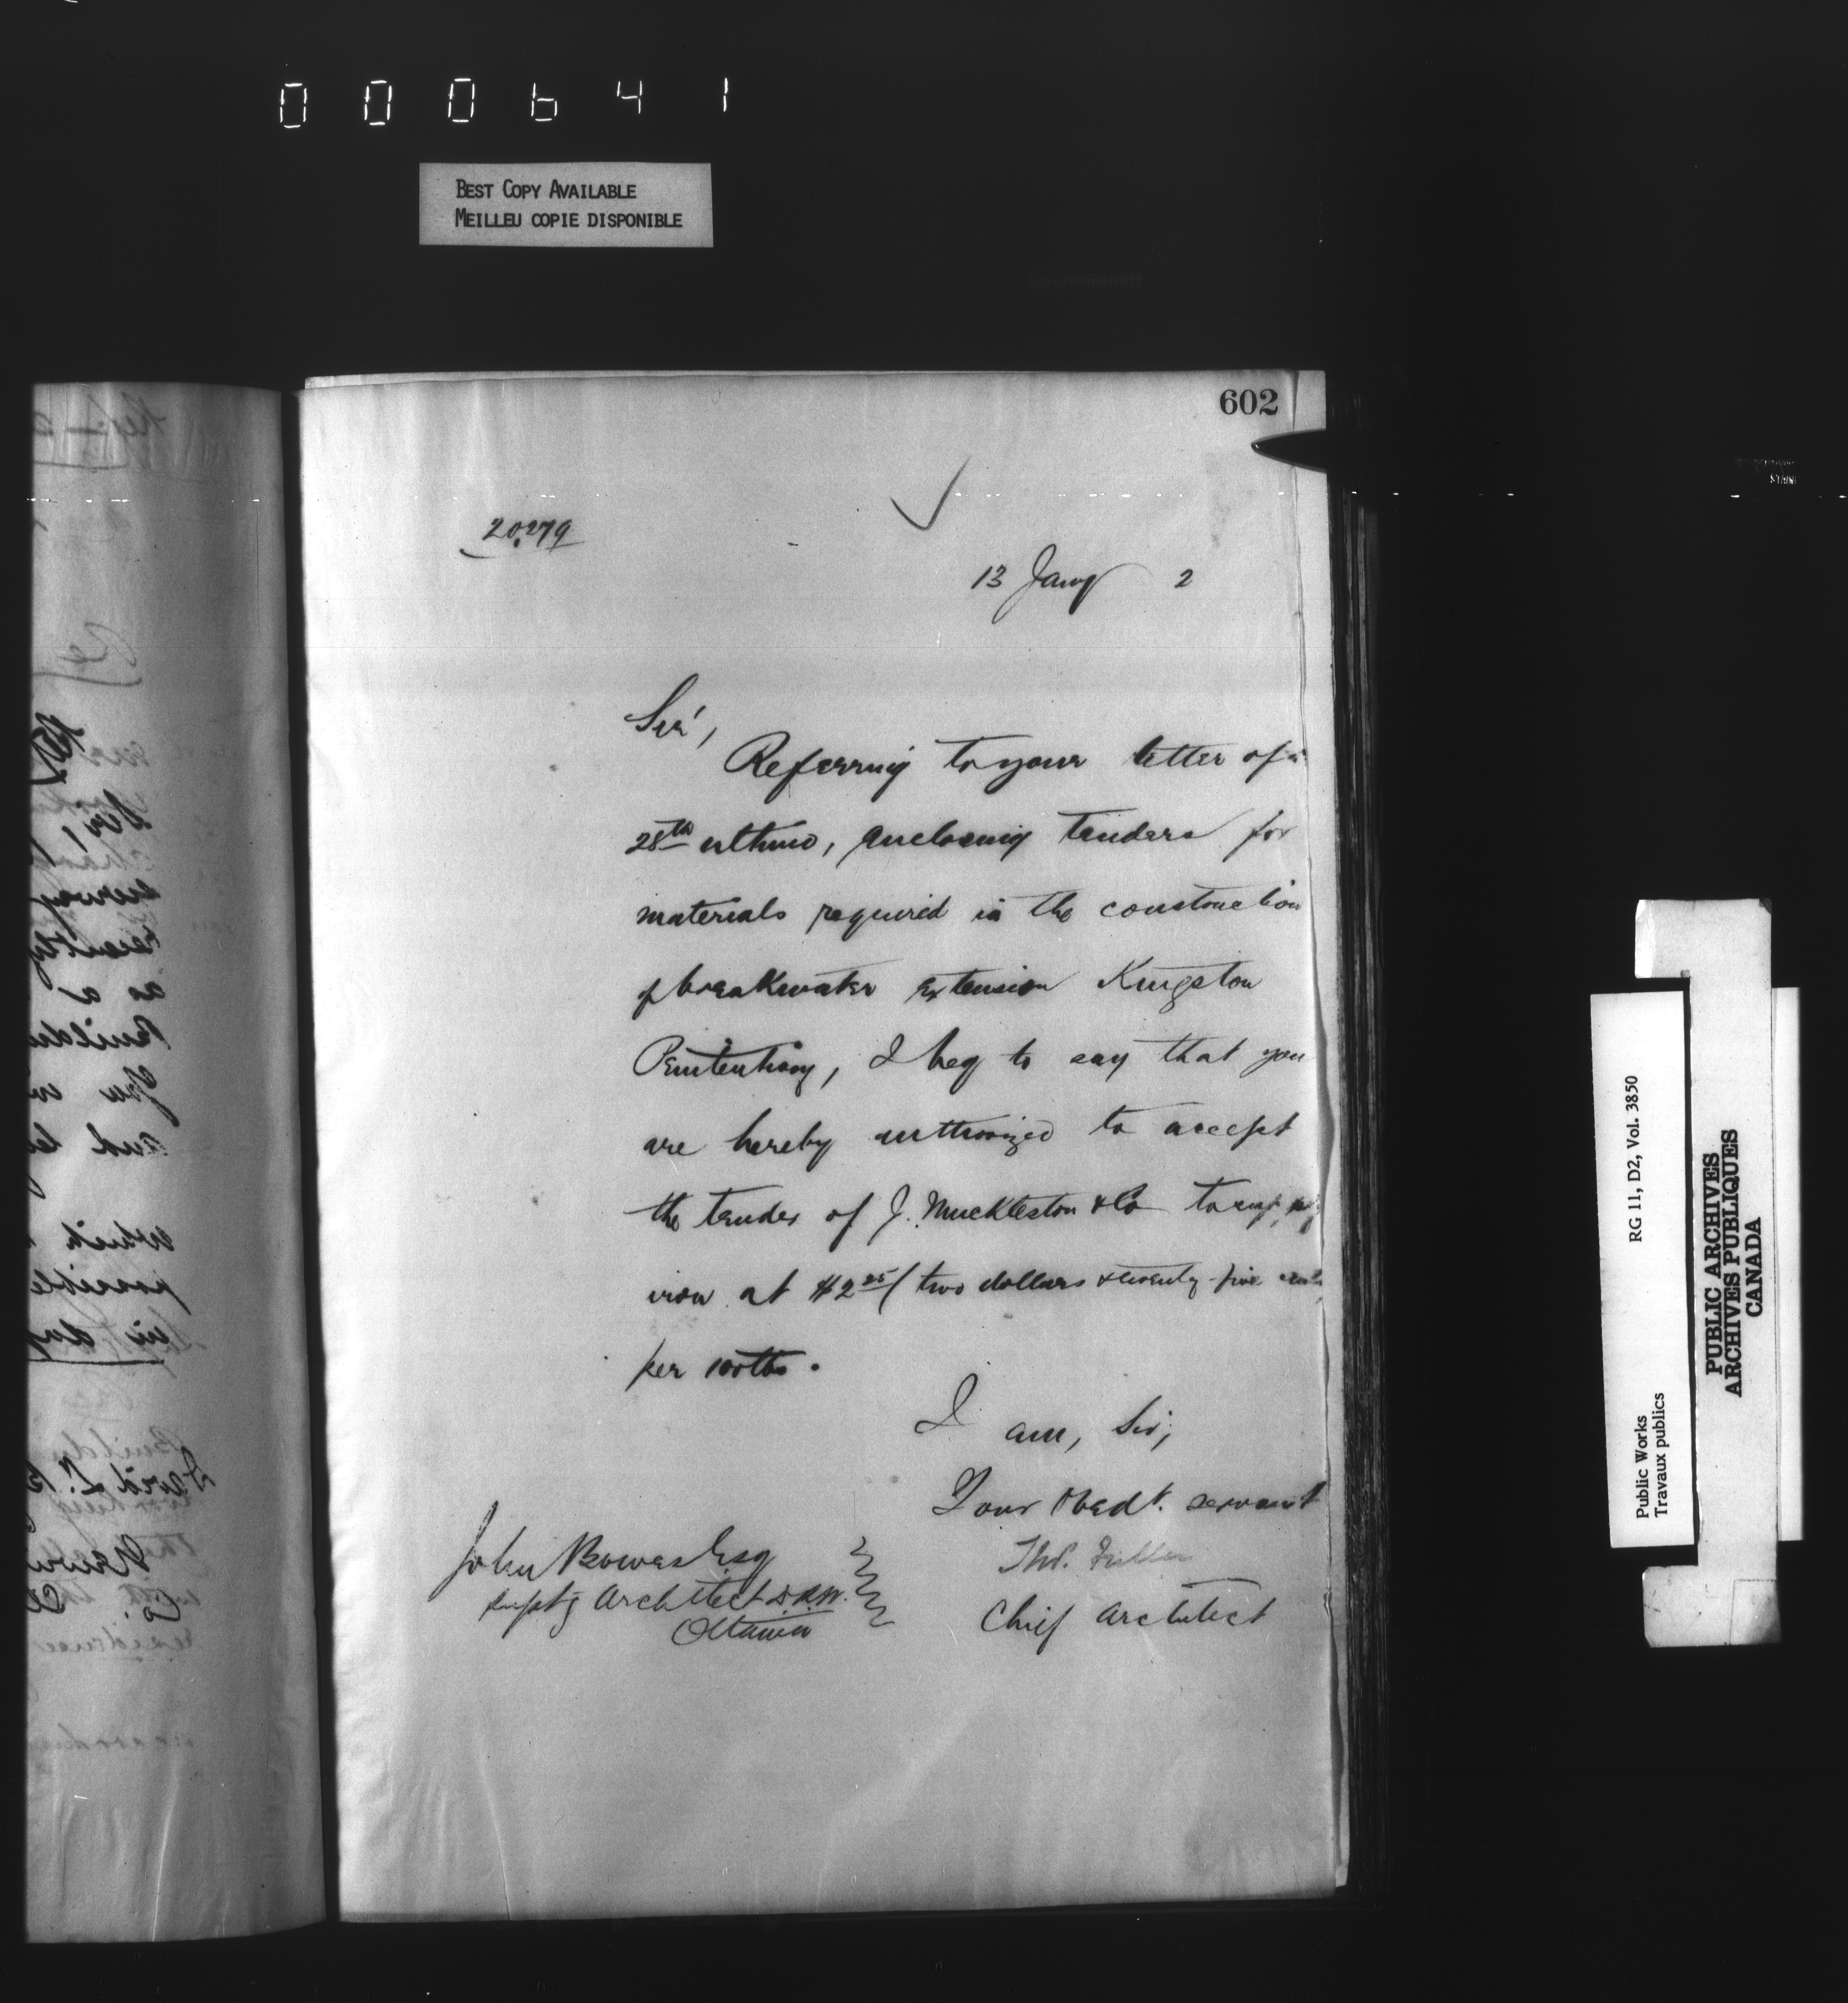 000641
BEST COPY AVAILABLE
MEILLEU COPIE DISPONIBLE
602
20,279
13 Jany 2
Sir,
Referring to your letter of
28th ultimo, enclosing tenders for
materials required in the construction
of breakwater extension Kingston
Penitentiary, I beg to say that you
are hereby authorized to accept
the tender of J. Muckleston & Co to supply
iron at $2 25/ two dollars & twenty-five cents
per 100 lbs.
I am, Sir,
Your Obedt. servant
Thos. Fuller
Chief Architect
John Bowes Esq
Architect D.P.W.
Ottawa
Public Works
Travaux publics
RG 11, D2, Vol. 3850
PUBLIC ARCHIVES
ARCHIVES PUBLIQUES
CANADA